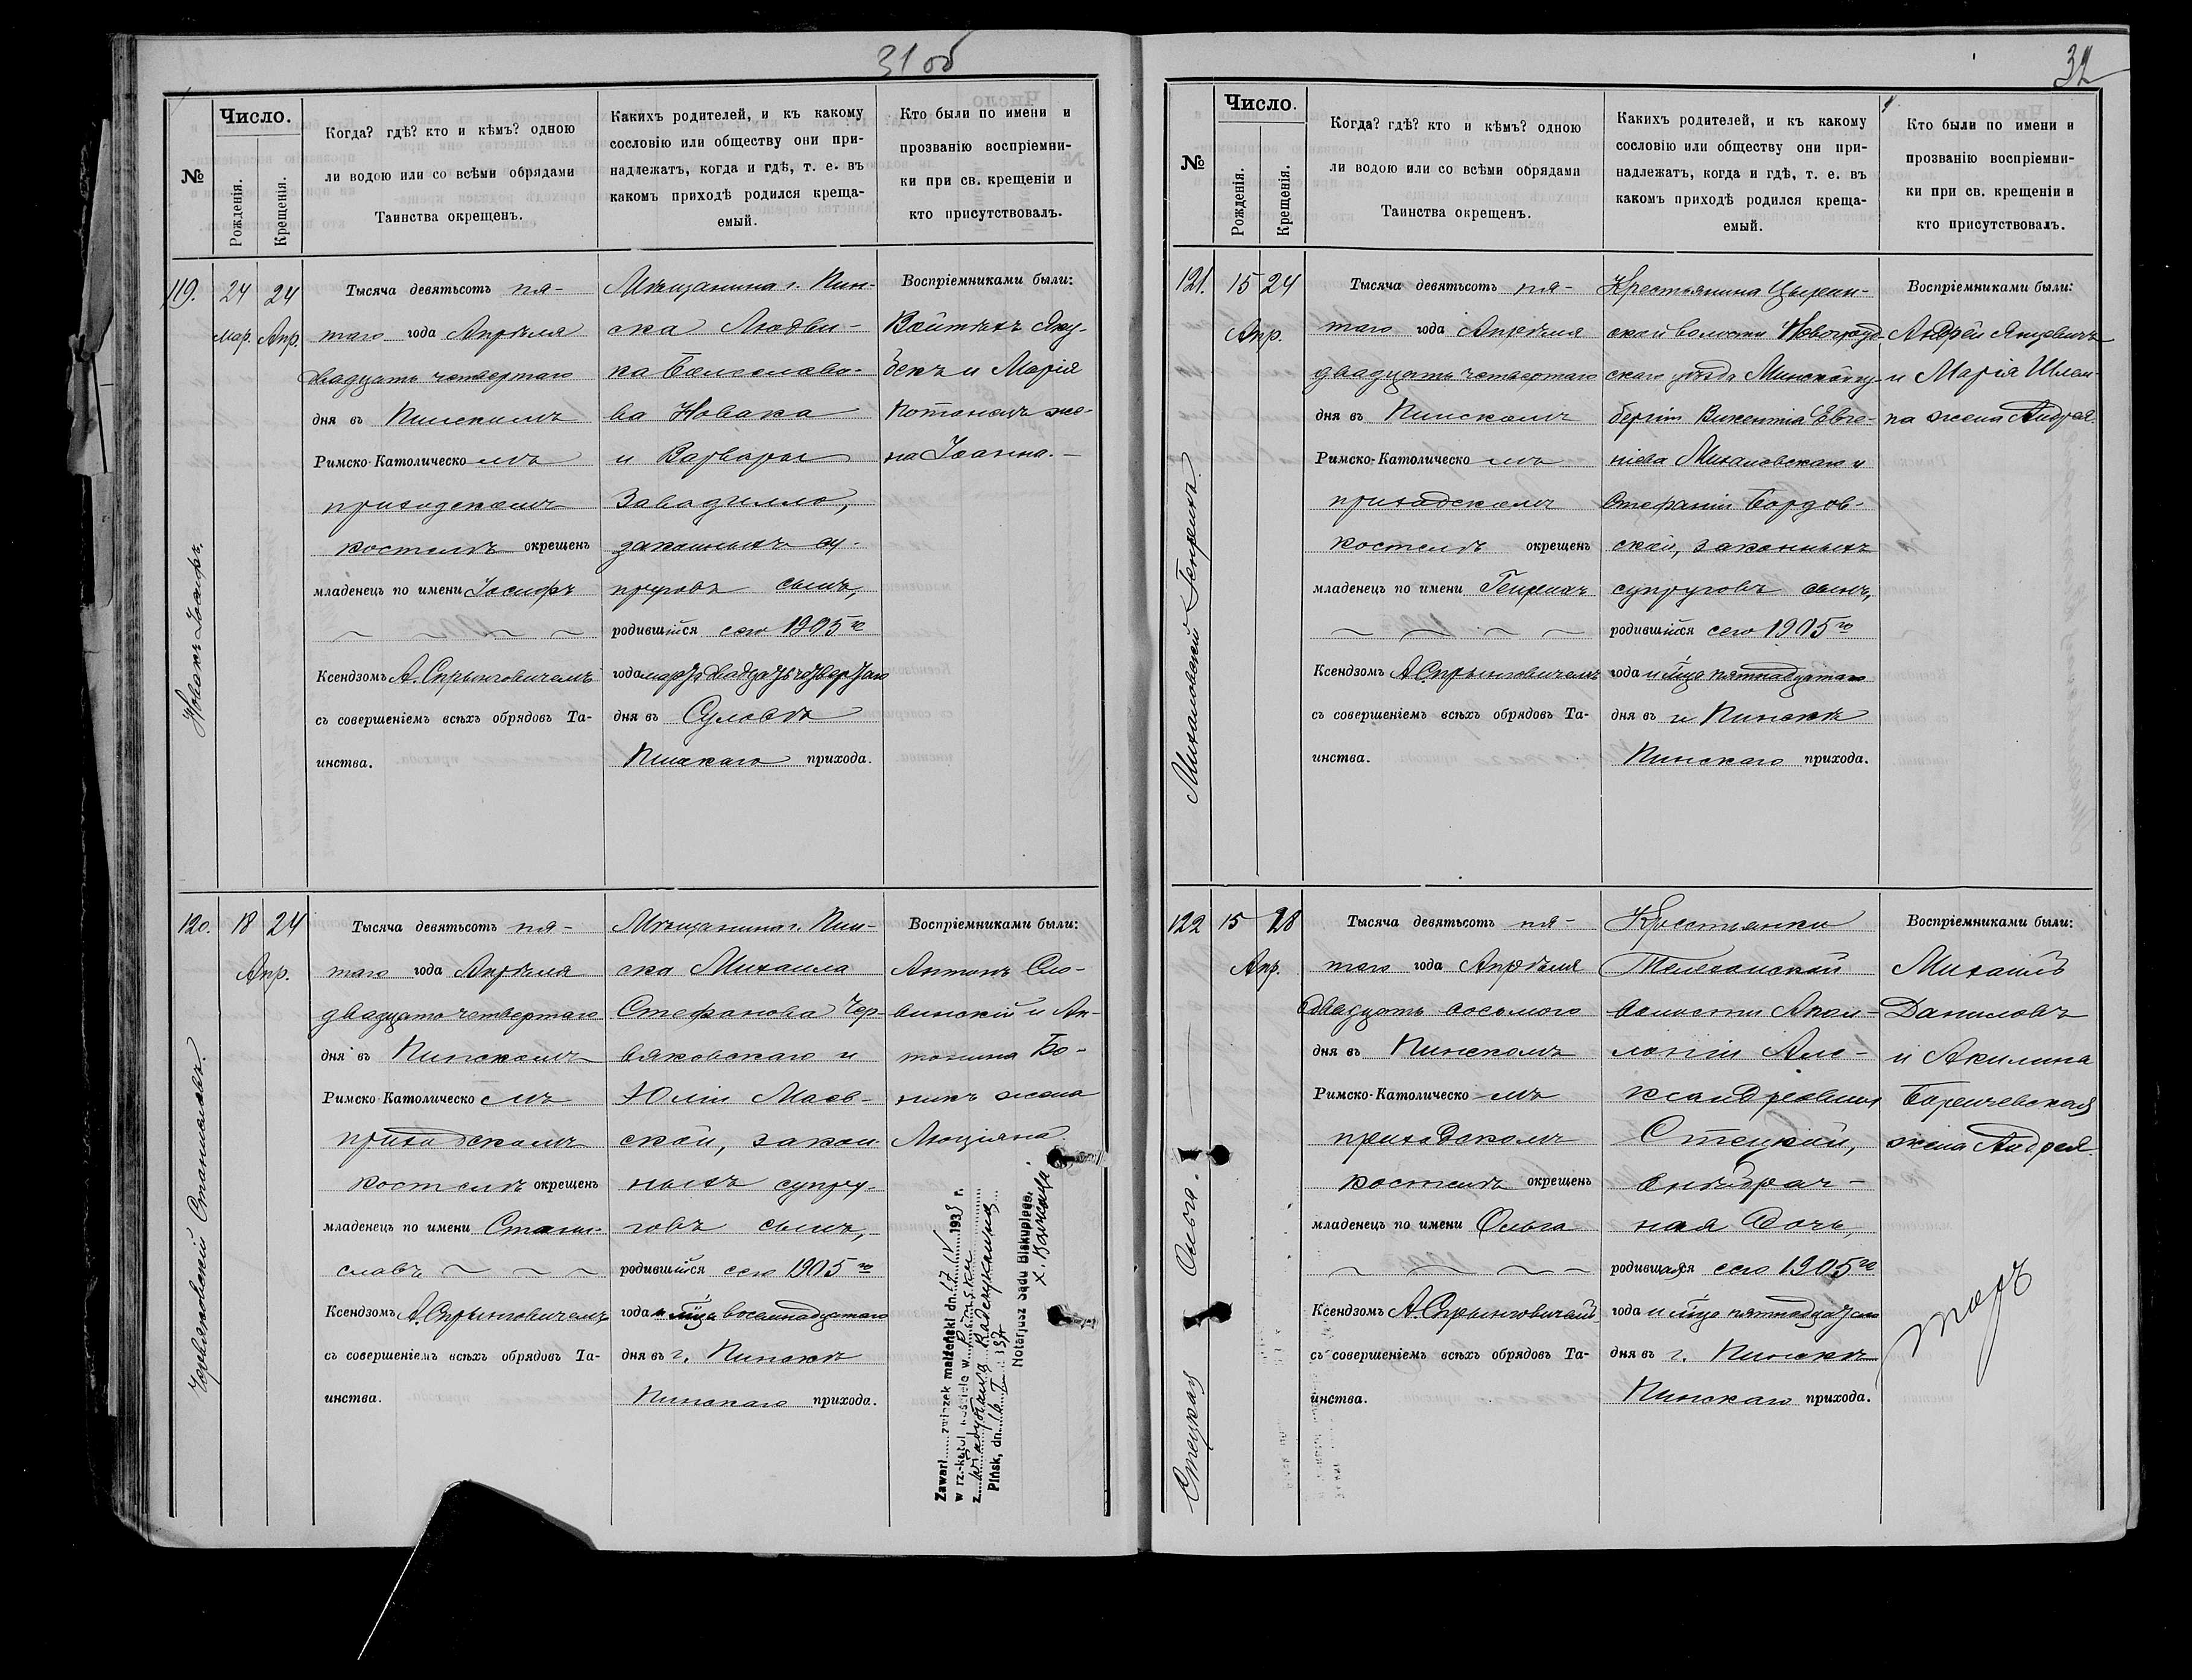 31 об
№
Число.
Рожденія.
Крещенія.
Когда? гдѣ? кто и кѣмъ? одною
ли водою или со всѣми обрядами
Таинства окрещенъ.
Какихъ родителей, и къ какому
сословію или обществу они при-
надлежатъ, когда и гдѣ, т. е. въ
какомъ приходѣ родился креща-
емый.
Кто были по имени и
прозванію воспріемни-
ки при св. крещеніи и
кто присутствовалъ.
119.
Новакъ Іосифъ.
24
Мар.
24
Апр.
Тысяча девятьсотъ пя-
таго года Апрѣля
двадцать четвертаго
дня въ Пинскомъ
Римско-Католическомъ
приходскомъ
костелѣ окрещенъ
младенецъ по имени Іосифъ
Ксендзомъ А. Спрынговичемъ
съ совершеніемъ всѣхъ обрядовъ Та-
инства.
Мѣщанина г. Пин-
ска Людви-
ка Болеславо-
ва Новака
и Варвары
Завадилло,
законныхъ су-
пруговъ сынъ,
родившійся сего 1905 го
года марта двадцать четвертаго
дня въ
Пинскаго прихода.
Воспріемниками были:
Войтѣхъ Яку-
бекъ и Марія
же-
на Іоанна.
120.
Червяковскій Станиславъ.
18
24
Апр.
Тысяча девятьсотъ пя-
таго года Апрѣля
двадцать четвертаго
дня въ Пинскомъ
Римско-Католическомъ
приходскомъ
костелѣ окрещенъ
младенецъ по имени Стани-
славъ
Ксендзомъ А. Спрынговичемъ
съ совершеніемъ всѣхъ обрядовъ Та-
инства.
Мѣщанина г. Пин-
ска Михаила
Стефанова Чер-
вяковскаго и
Юліи Маев-
ской, закон-
ныхъ супру-
говъ сынъ,
родившійся сего 1905 го
года и мѣсяца восемнадцатаго
дня въ г. Пинскѣ
Пинскаго прихода.
Воспріемниками были:
Антонъ Сло-
винскій и Ан-
тонина Бо-
жена
Люціана
Zawarł związek małżeński dn. 17 IV 193 r.
w rz.-katol. kościele w Pińsku
z
Pińsk, dn.
Notarjusz Sądu Biskupiego.
32
№
Число.
Рожденія.
Крещенія.
Когда? гдѣ? кто и кѣмъ? одною
ли водою или со всѣми обрядами
Таинства окрещенъ.
Какихъ родителей, и къ какому
сословію или обществу они при-
надлежатъ, когда и гдѣ, т. е. въ
какомъ приходѣ родился креща-
емый.
Кто были по имени и
прозванію воспріемни-
ки при св. крещеніи и
кто присутствовалъ.
121.
Михаловскій Генрихъ.
15
24
Апр.
Тысяча девятьсотъ пя-
таго года Апрѣля
двадцать четвертаго
дня въ Пинскомъ
Римско-Католическомъ
приходскомъ
костелѣ окрещенъ
младенецъ по имени Генрихъ
Ксендзомъ А. Спрынговичемъ
съ совершеніемъ всѣхъ обрядовъ Та-
инства.
Крестьянина Цырин-
ской волости Новогруд-
скаго уѣзда Минской гу-
берніи Викентія Евге-
ніева Михаловскаго и
Стефаніи Бордов-
ской, законныхъ
супруговъ сынъ,
родившійся сего 1905 го
года и мѣсяца пятнадцатаго
дня въ г. Пинскѣ
Пинскаго прихода.
Воспріемниками были:
Андрей Янцевичъ
и Марія Шлем-
па жена Андрея.
122
Стецкая Ольга.
15
28
Апр.
Тысяча девятьсотъ пя-
таго года Апрѣля
двадцать восьмого
дня въ Пинскомъ
Римско-Католическомъ
приходскомъ
костелѣ окрещенъ
младенецъ по имени Ольга
Ксендзомъ А. Спрынговичемъ
съ совершеніемъ всѣхъ обрядовъ Та-
инства.
Крестьянки
Телеханской
волости Апол-
лоніи Але-
ксандровны
Стецкой,
внѣбрач-
ная дочь,
родившаяся сего 1905 го
года и мѣсяца пятнадцатаго
дня въ г. Пинскѣ
Пинскаго прихода.
Воспріемниками были:
Михаилъ
Даниловъ
и Акилина
Боричевская
жена Андрея.